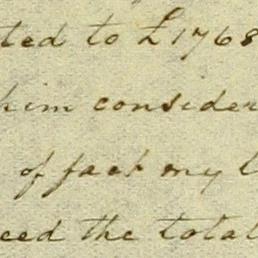 ted to £1768
him consider
of fact my l
eed the total